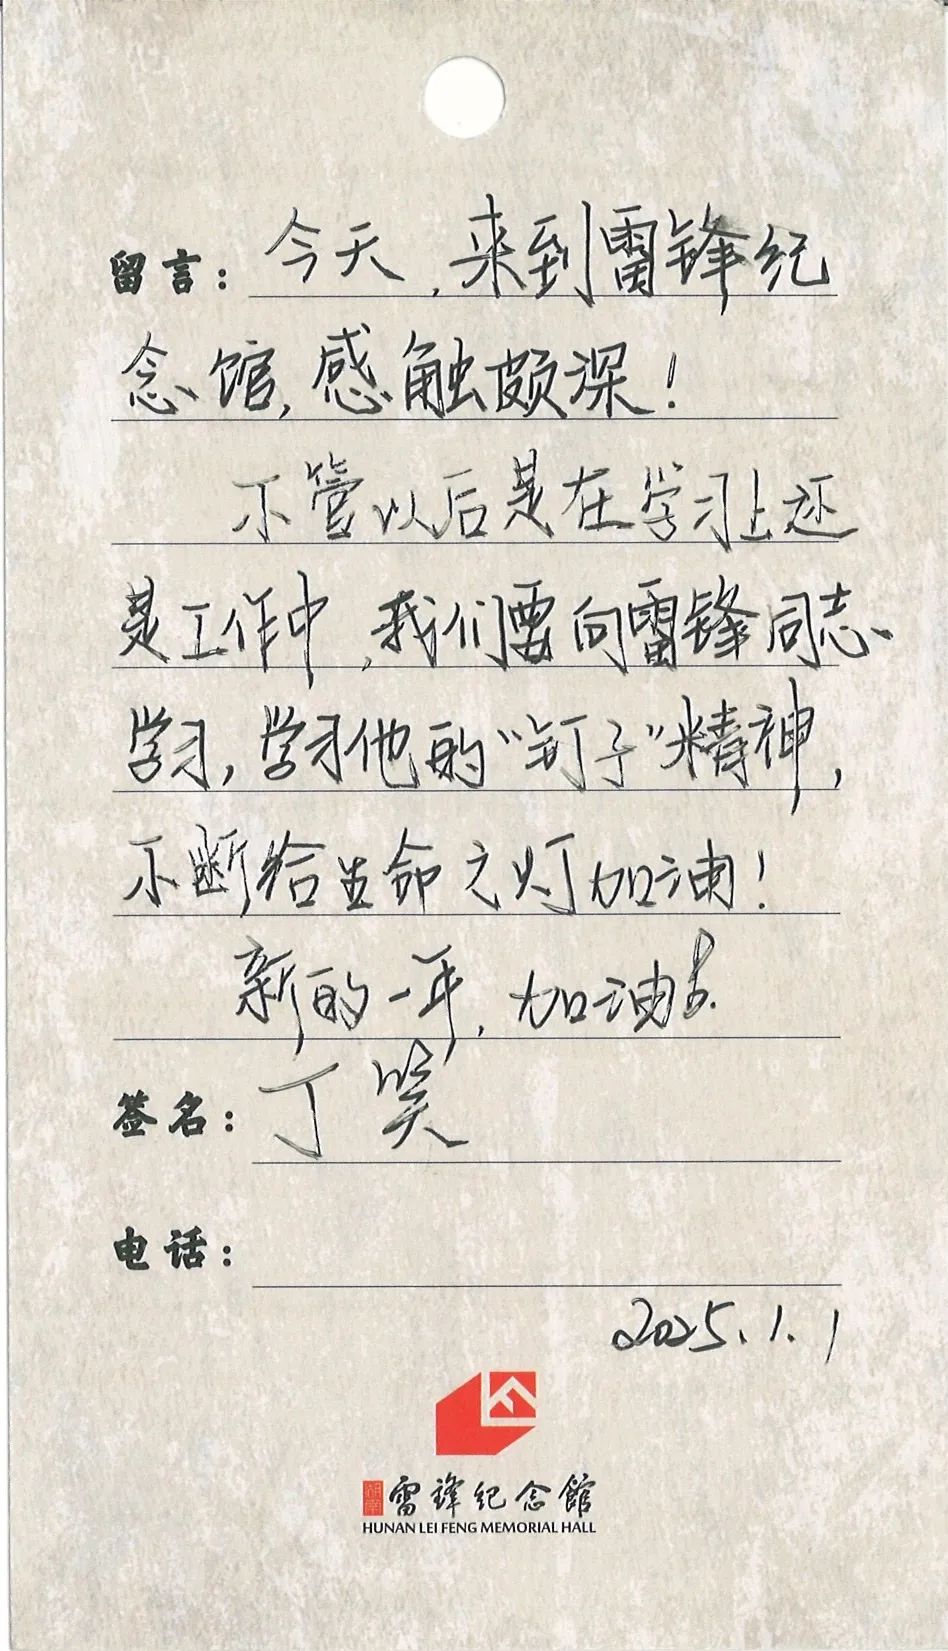 留言：今天，来到雷锋纪
念馆，感触颇深！
不管以后是在学习上还
是工作中，我们要向雷锋同志
学习，学习他的“钉子”精神，
不断给生命之灯加油！
新的一年，加油！
签名：丁笑
电话：
2025.1.1
湖南 雷锋纪念館
HUNAN LEI FENG MEMORIAL HALL